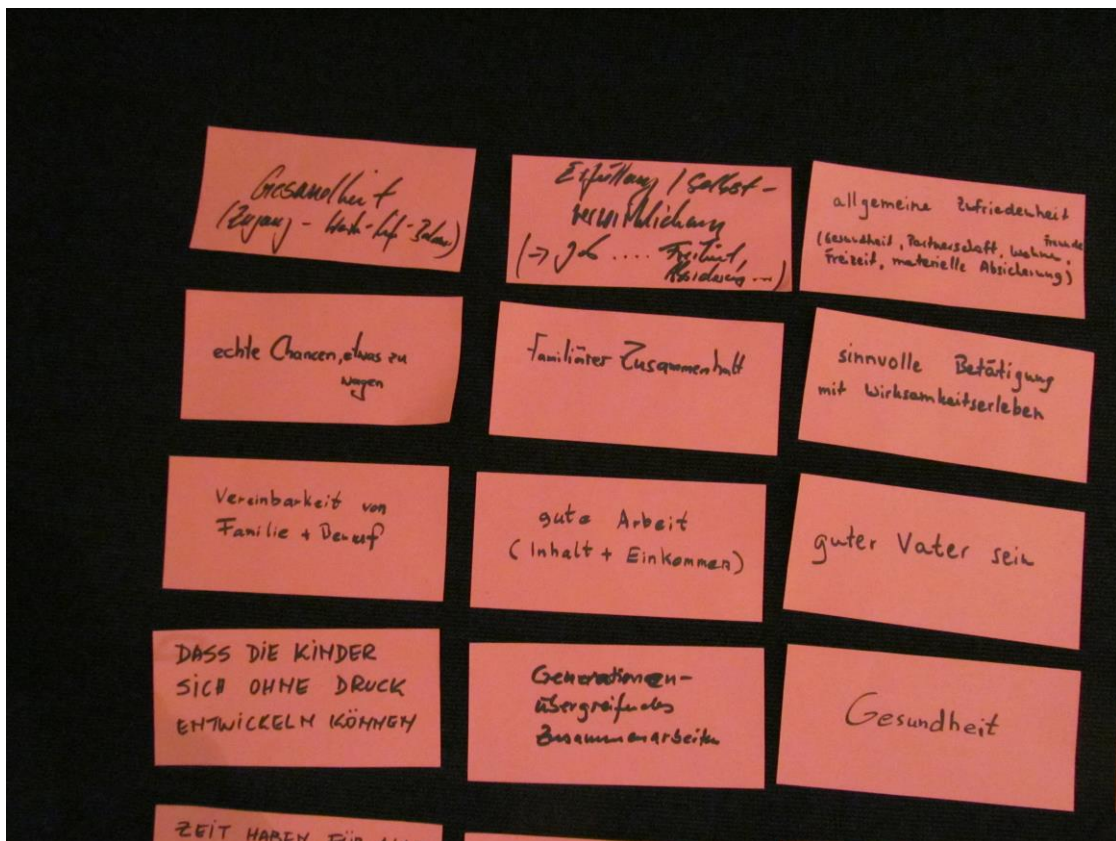 Gesundheit
(Zugang - Work-Life-Balance)
Erfüllung / Selbst-
verwirklichung
(-> Job .... Freizeit,
Absicherung ...)
allgemeine Zufriedenheit
(Gesundheit, Partnerschaft, wohnen, Freunde
Freizeit, materielle Absicherung)
echte Chancen, etwas zu
wagen
Familiärer Zusammenhalt
sinnvolle Betätigung
mit Wirksamkeitserleben
Vereinbarkeit von
Familie + Beruf
gute Arbeit
(Inhalt + Einkommen)
guter Vater sein
DASS DIE KINDER
SICH OHNE DRUCK
ENTWICKELN KÖNNEN
Generationen-
übergreifendes
Zusammenarbeiten
Gesundheit
ZEIT HABEN FÜR